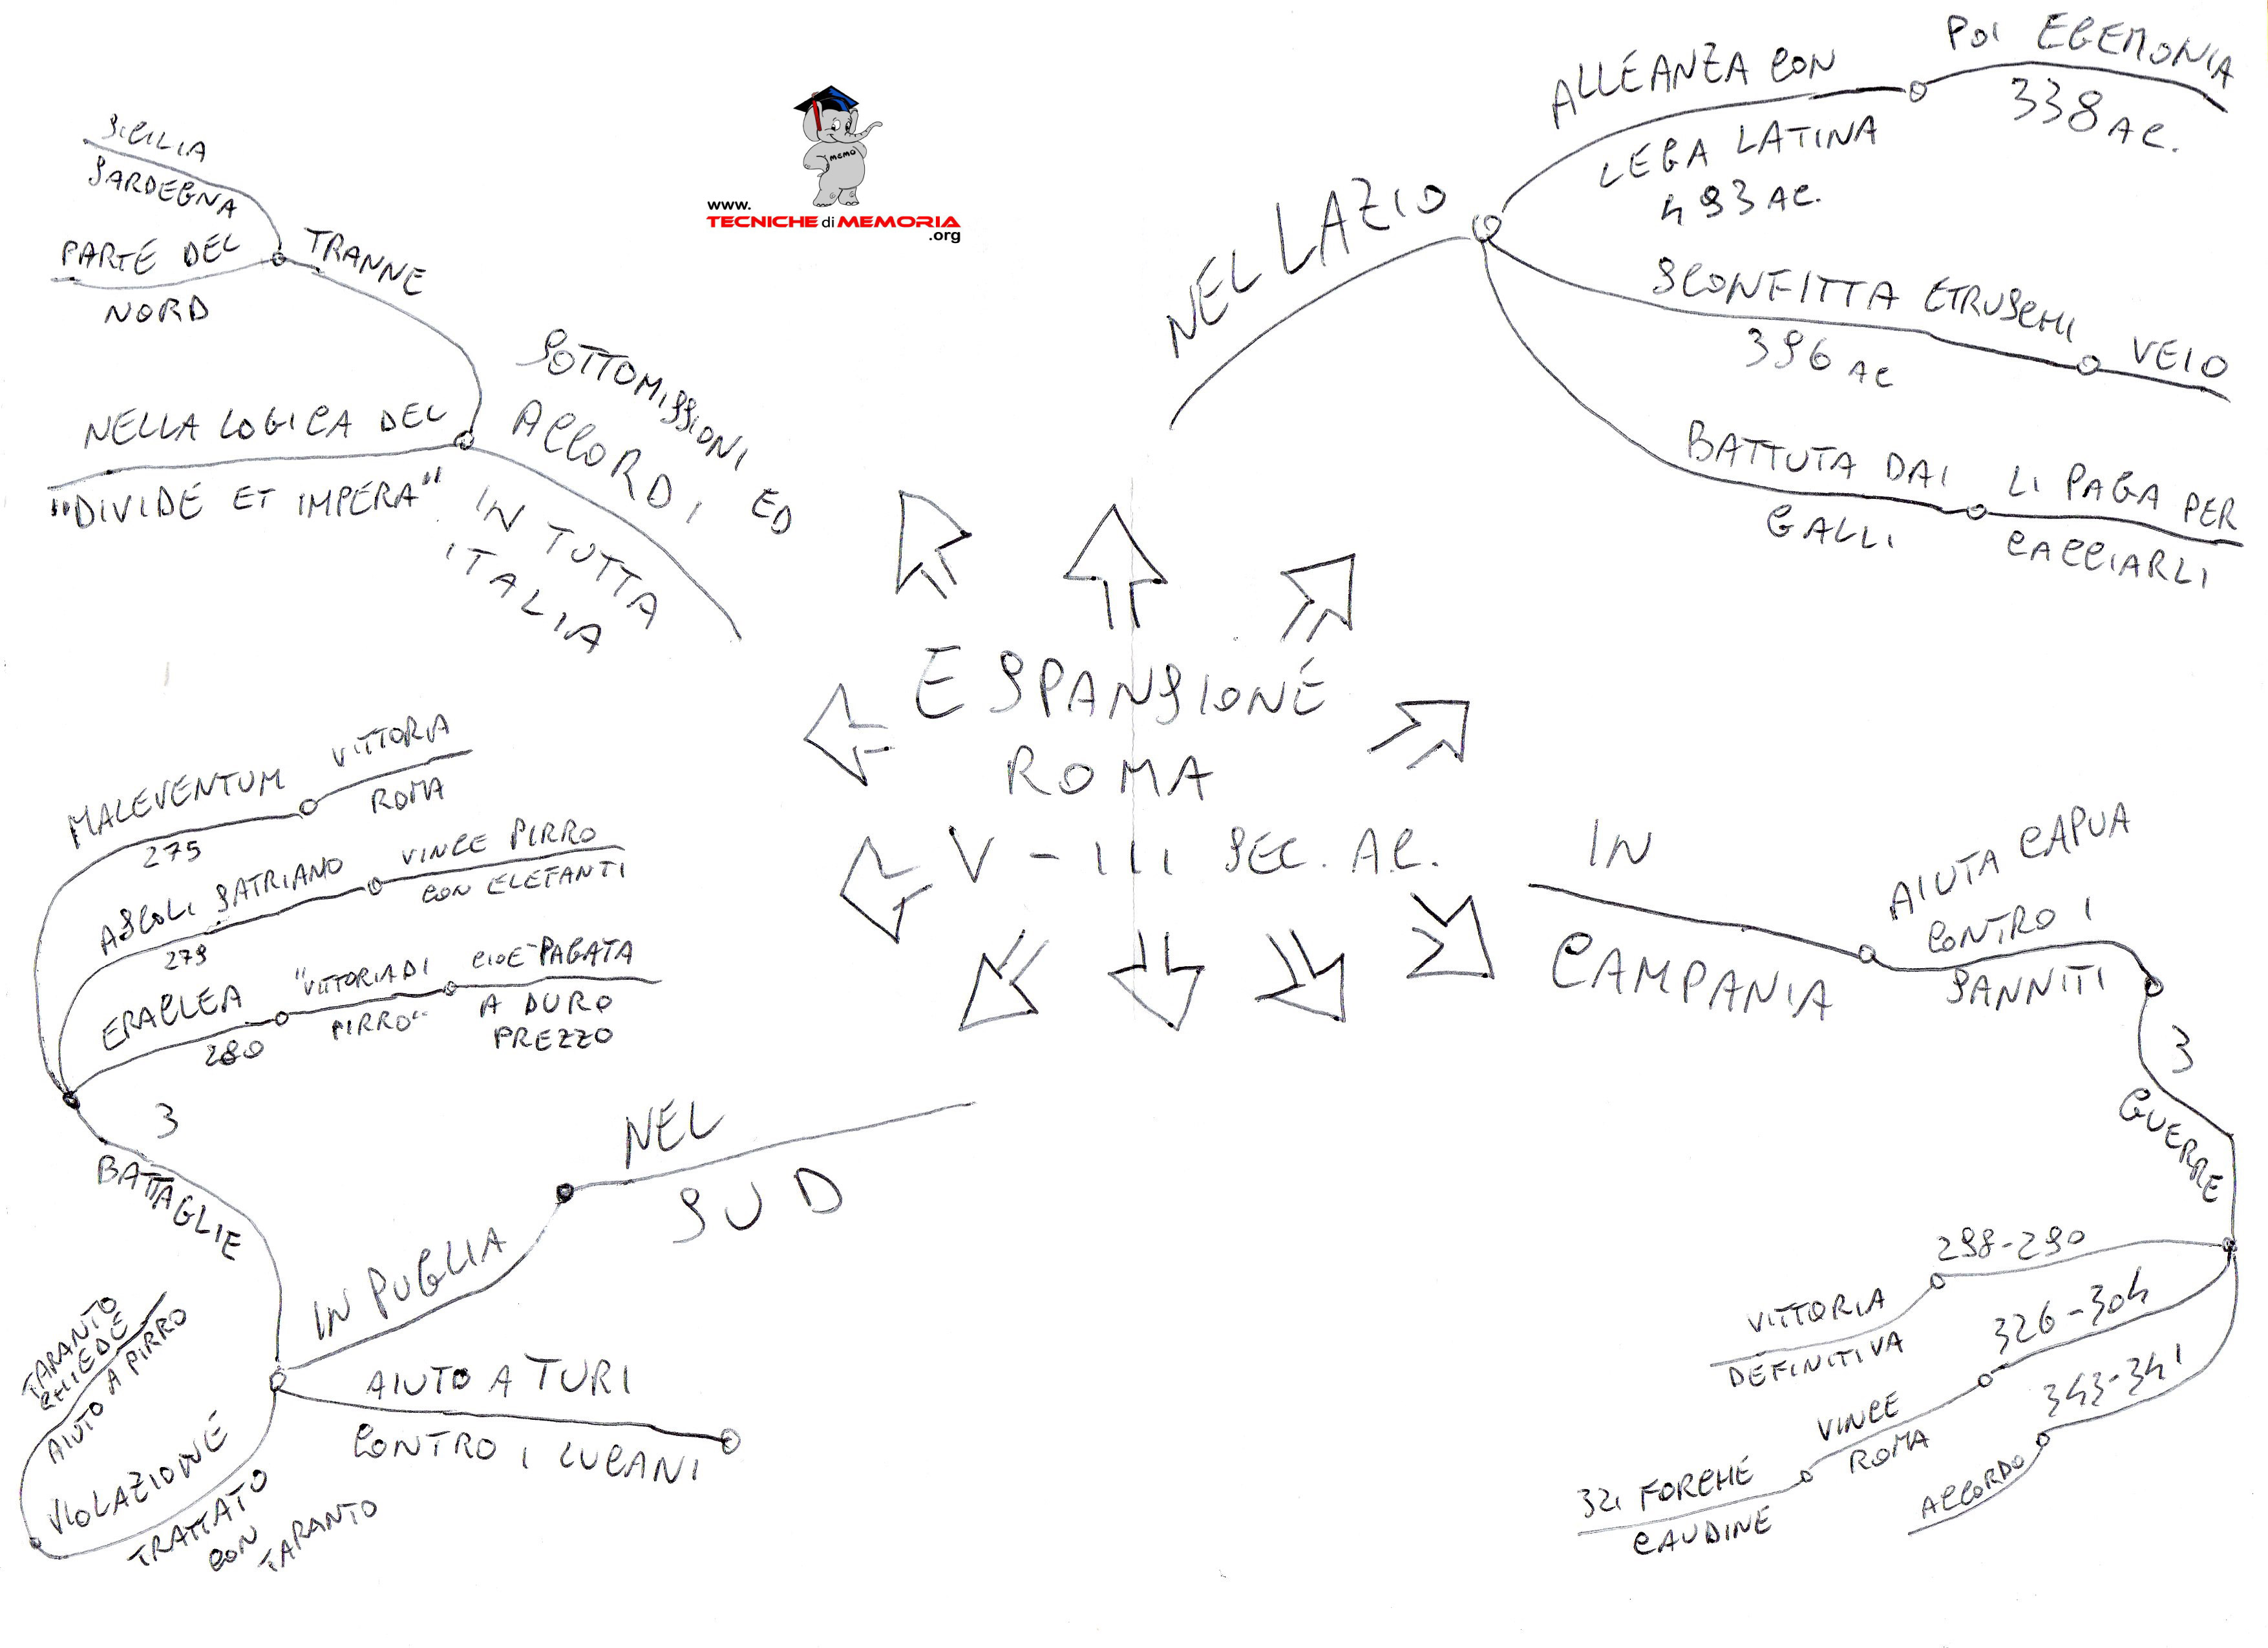 www.
TECNICHE di MEMORIA
.org
MEMO
ESPANSIONE
ROMA
V - III SEC. AC.
NEL LAZIO
ALLEANZA CON
LEGA LATINA
493 AC.
POI EGEMONIA
338 AC.
SCONFITTA ETRUSCHI
396 AC
VEIO
BATTUTA DAI
GALLI
LI PAGA PER
CACCIARLI
IN
CAMPANIA
AIUTA CAPUA
CONTRO I
SANNITI
3
GUERRE
298-290
VITTORIA
DEFINITIVA
326-304
VINCE
ROMA
321 FORCHE
CAUDINE
343-341
ACCORDO
NEL
SUD
IN PUGLIA
AIUTO A TURI
CONTRO I LUCANI
VIOLAZIONE
TRATTATO
CON
TARANTO
TARANTO
CHIEDE
AIUTO A PIRRO
3
BATTAGLIE
ERACLEA
280
"VITTORIA DI
PIRRO"
CIOE' PAGATA
A DURO
PREZZO
ASCOLI SATRIANO
279
VINCE PIRRO
CON ELEFANTI
MALEVENTUM
275
VITTORIA
ROMA
SOTTOMISSIONI ED
ACCORDI
IN TUTTA
ITALIA
NELLA LOGICA DEL
"DIVIDE ET IMPERA"
TRANNE
SICILIA
SARDEGNA
PARTE DEL
NORD